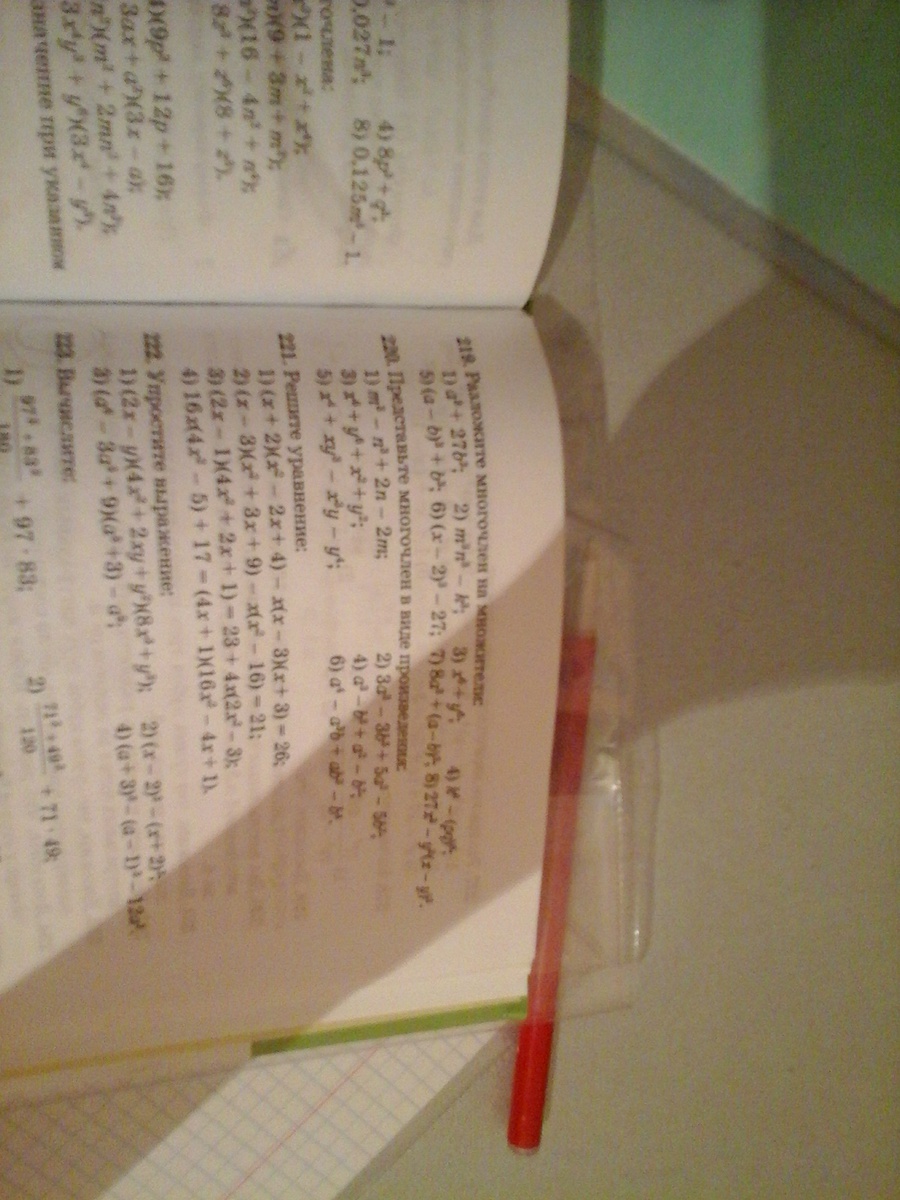 ³ − 1; 4) 8p³ + q³;
0,027n³; 8) 0,125m⁶ − 1.
точлена:
²)(1 − x² + x⁴);
m)(9 + 3m + m²);
n²)(16 − 4n² + n⁴);
8z² + z⁴)(8 + z²).
4)(9p² + 12p + 16);
3ax + a²)(3x − a);
n²)(m² + 2mn² + 4n⁴);
3x⁴y² + y⁴)(3x⁴ − y²).
значение при указанном
219. Разложите многочлен на множители:
1) a³ + 27b³; 2) m³n³ − k³; 3) x⁶ + y⁶; 4) k⁶ − (pq)⁶;
5) (a − b)³ + b³; 6) (x − 2)³ − 27; 7) 8a³ + (a − b)³; 8) 27z³ − y³(x − y)³.
220. Представьте многочлен в виде произведения:
1) m³ − n³ + 2n − 2m; 2) 3a³ − 3b³ + 5a² − 5b²;
3) x⁶ + y⁶ + x² + y²; 4) a³ − b³ + a² − b²;
5) x⁴ + xy³ − x³y − y⁴; 6) a⁴ − a³b + ab³ − b⁴.
221. Решите уравнение:
1) (x + 2)(x² − 2x + 4) − x(x − 3)(x + 3) = 26;
2) (x − 3)(x² + 3x + 9) − x(x² − 16) = 21;
3) (2x − 1)(4x² + 2x + 1) = 23 + 4x(2x² − 3);
4) 16x(4x² − 5) + 17 = (4x + 1)(16x² − 4x + 1).
222. Упростите выражение:
1) (2x − y)(4x² + 2xy + y²)(8x³ + y³); 2) (x − 2)³ − (x + 2)³;
3) (a⁶ − 3a³ + 9)(a³ + 3) − a⁹; 4) (a + 3)³ − (a − 1)³ − 12a².
223. Вычислите:
1) (97³ + 83³)/180 + 97 · 83; 2) (71³ + 49³)/120 + 71 · 49;